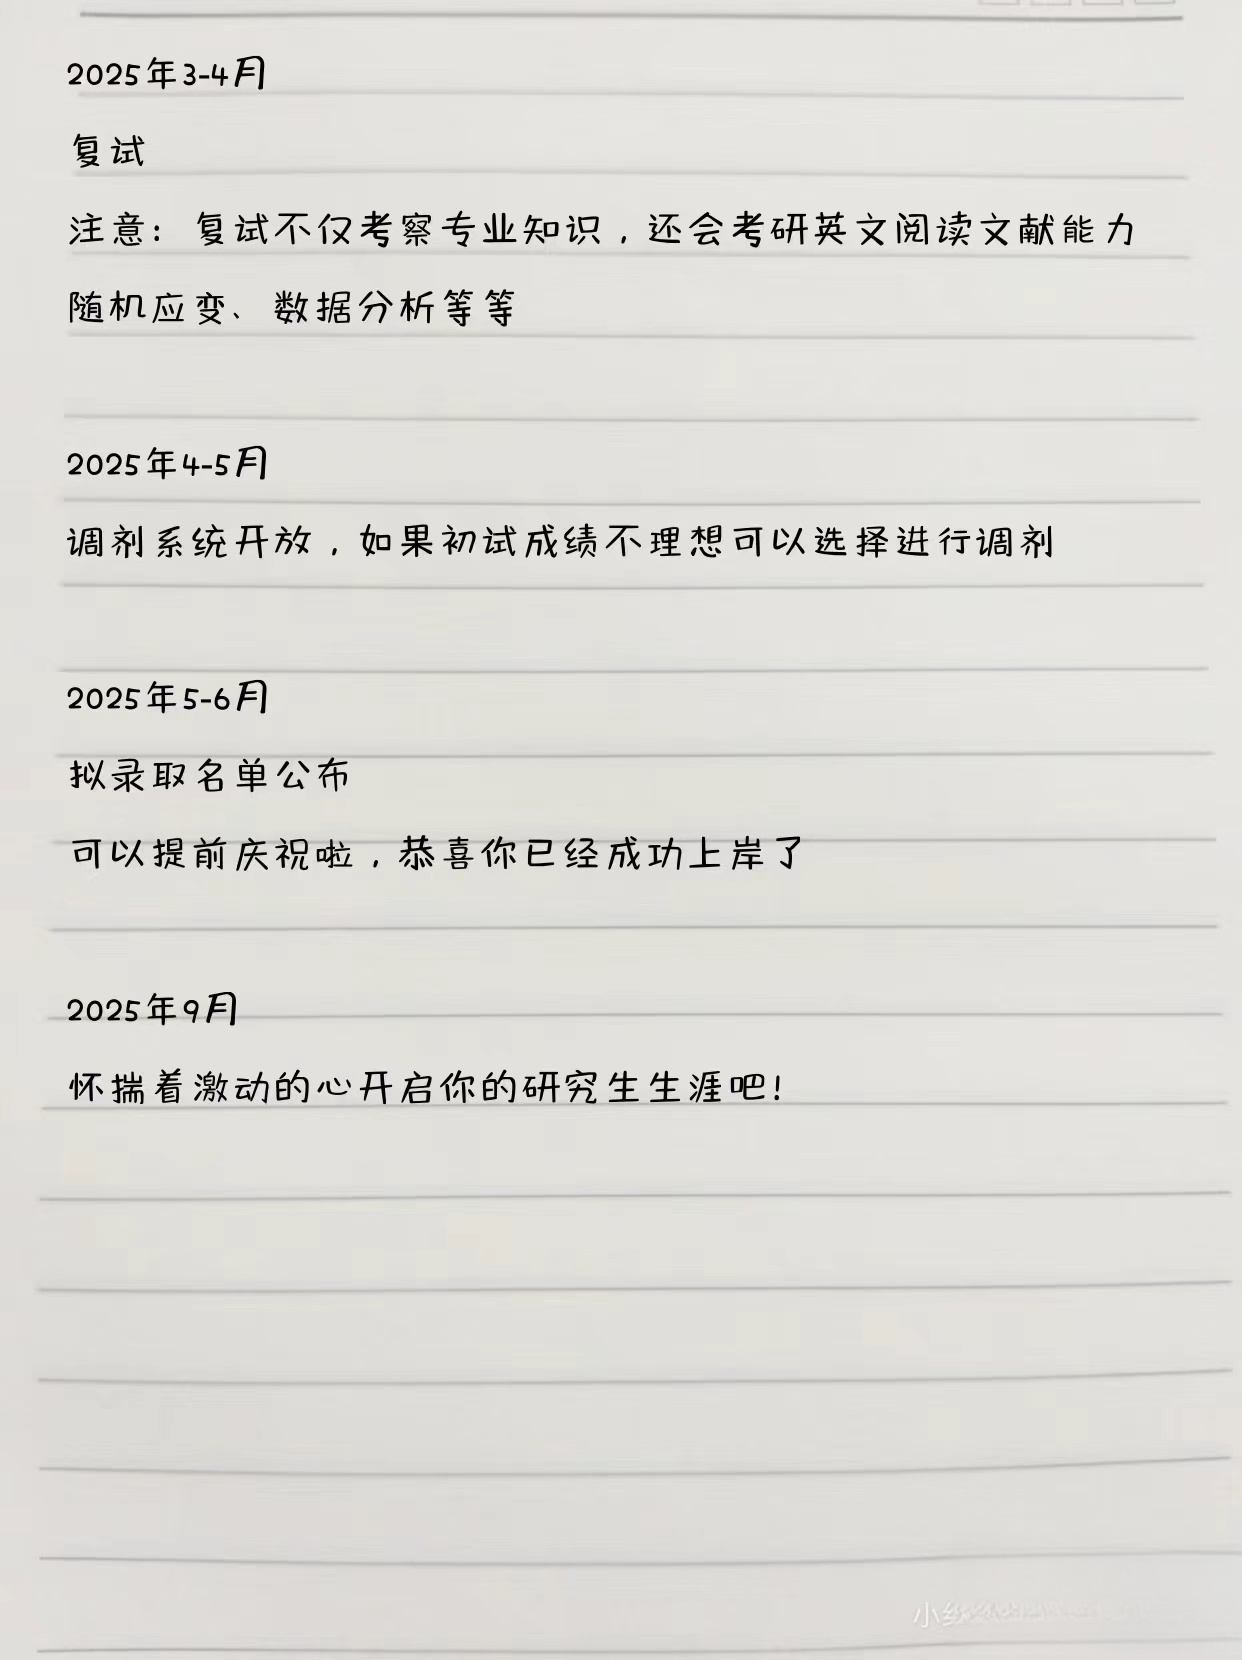 2025年3-4月
复试
注意：复试不仅考察专业知识，还会考研英文阅读文献能力
随机应变、数据分析等等
2025年4-5月
调剂系统开放，如果初试成绩不理想可以选择进行调剂
2025年5-6月
拟录取名单公布
可以提前庆祝啦，恭喜你已经成功上岸了
2025年9月
怀揣着激动的心开启你的研究生生涯吧！
小